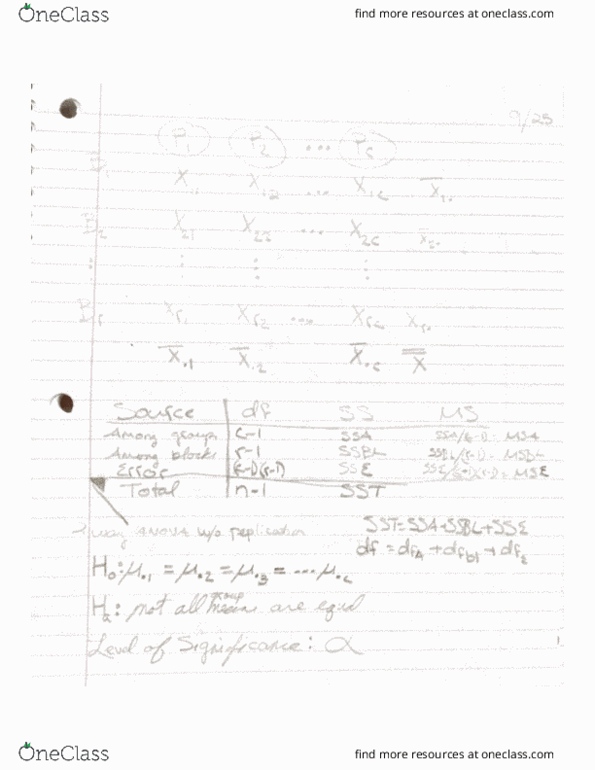 OneClass find more resources at oneclass.com
9/25
P₁ P₂ ... P_c
X₁₂ ... X₁c X̄₁.
B₂ X₂₁ X₂₂ ... X₂c X̄₂.
⋮ ⋮ ⋮ ⋮
B_r X_r₁ X_r₂ .... X_rc X̄_r.
X̄.₁ X̄.₂ X̄.c X̿
Source df SS MS
Among groups c-1 SSA SSA/(c-1) = MSA
Among blocks r-1 SSBL SSBL/(r-1) = MSBL
Error (c-1)(r-1) SSE SSE/(c-1)(r-1) = MSE
Total n-1 SST
2 way ANOVA w/o replication SST = SSA + SSBL + SSE
df = df_A + df_bl + df_E
H₀: μ.₁ = μ.₂ = μ.₃ = .... μ.c
Hₐ: not all group means are equal
Level of Significance: α
OneClass find more resources at oneclass.com